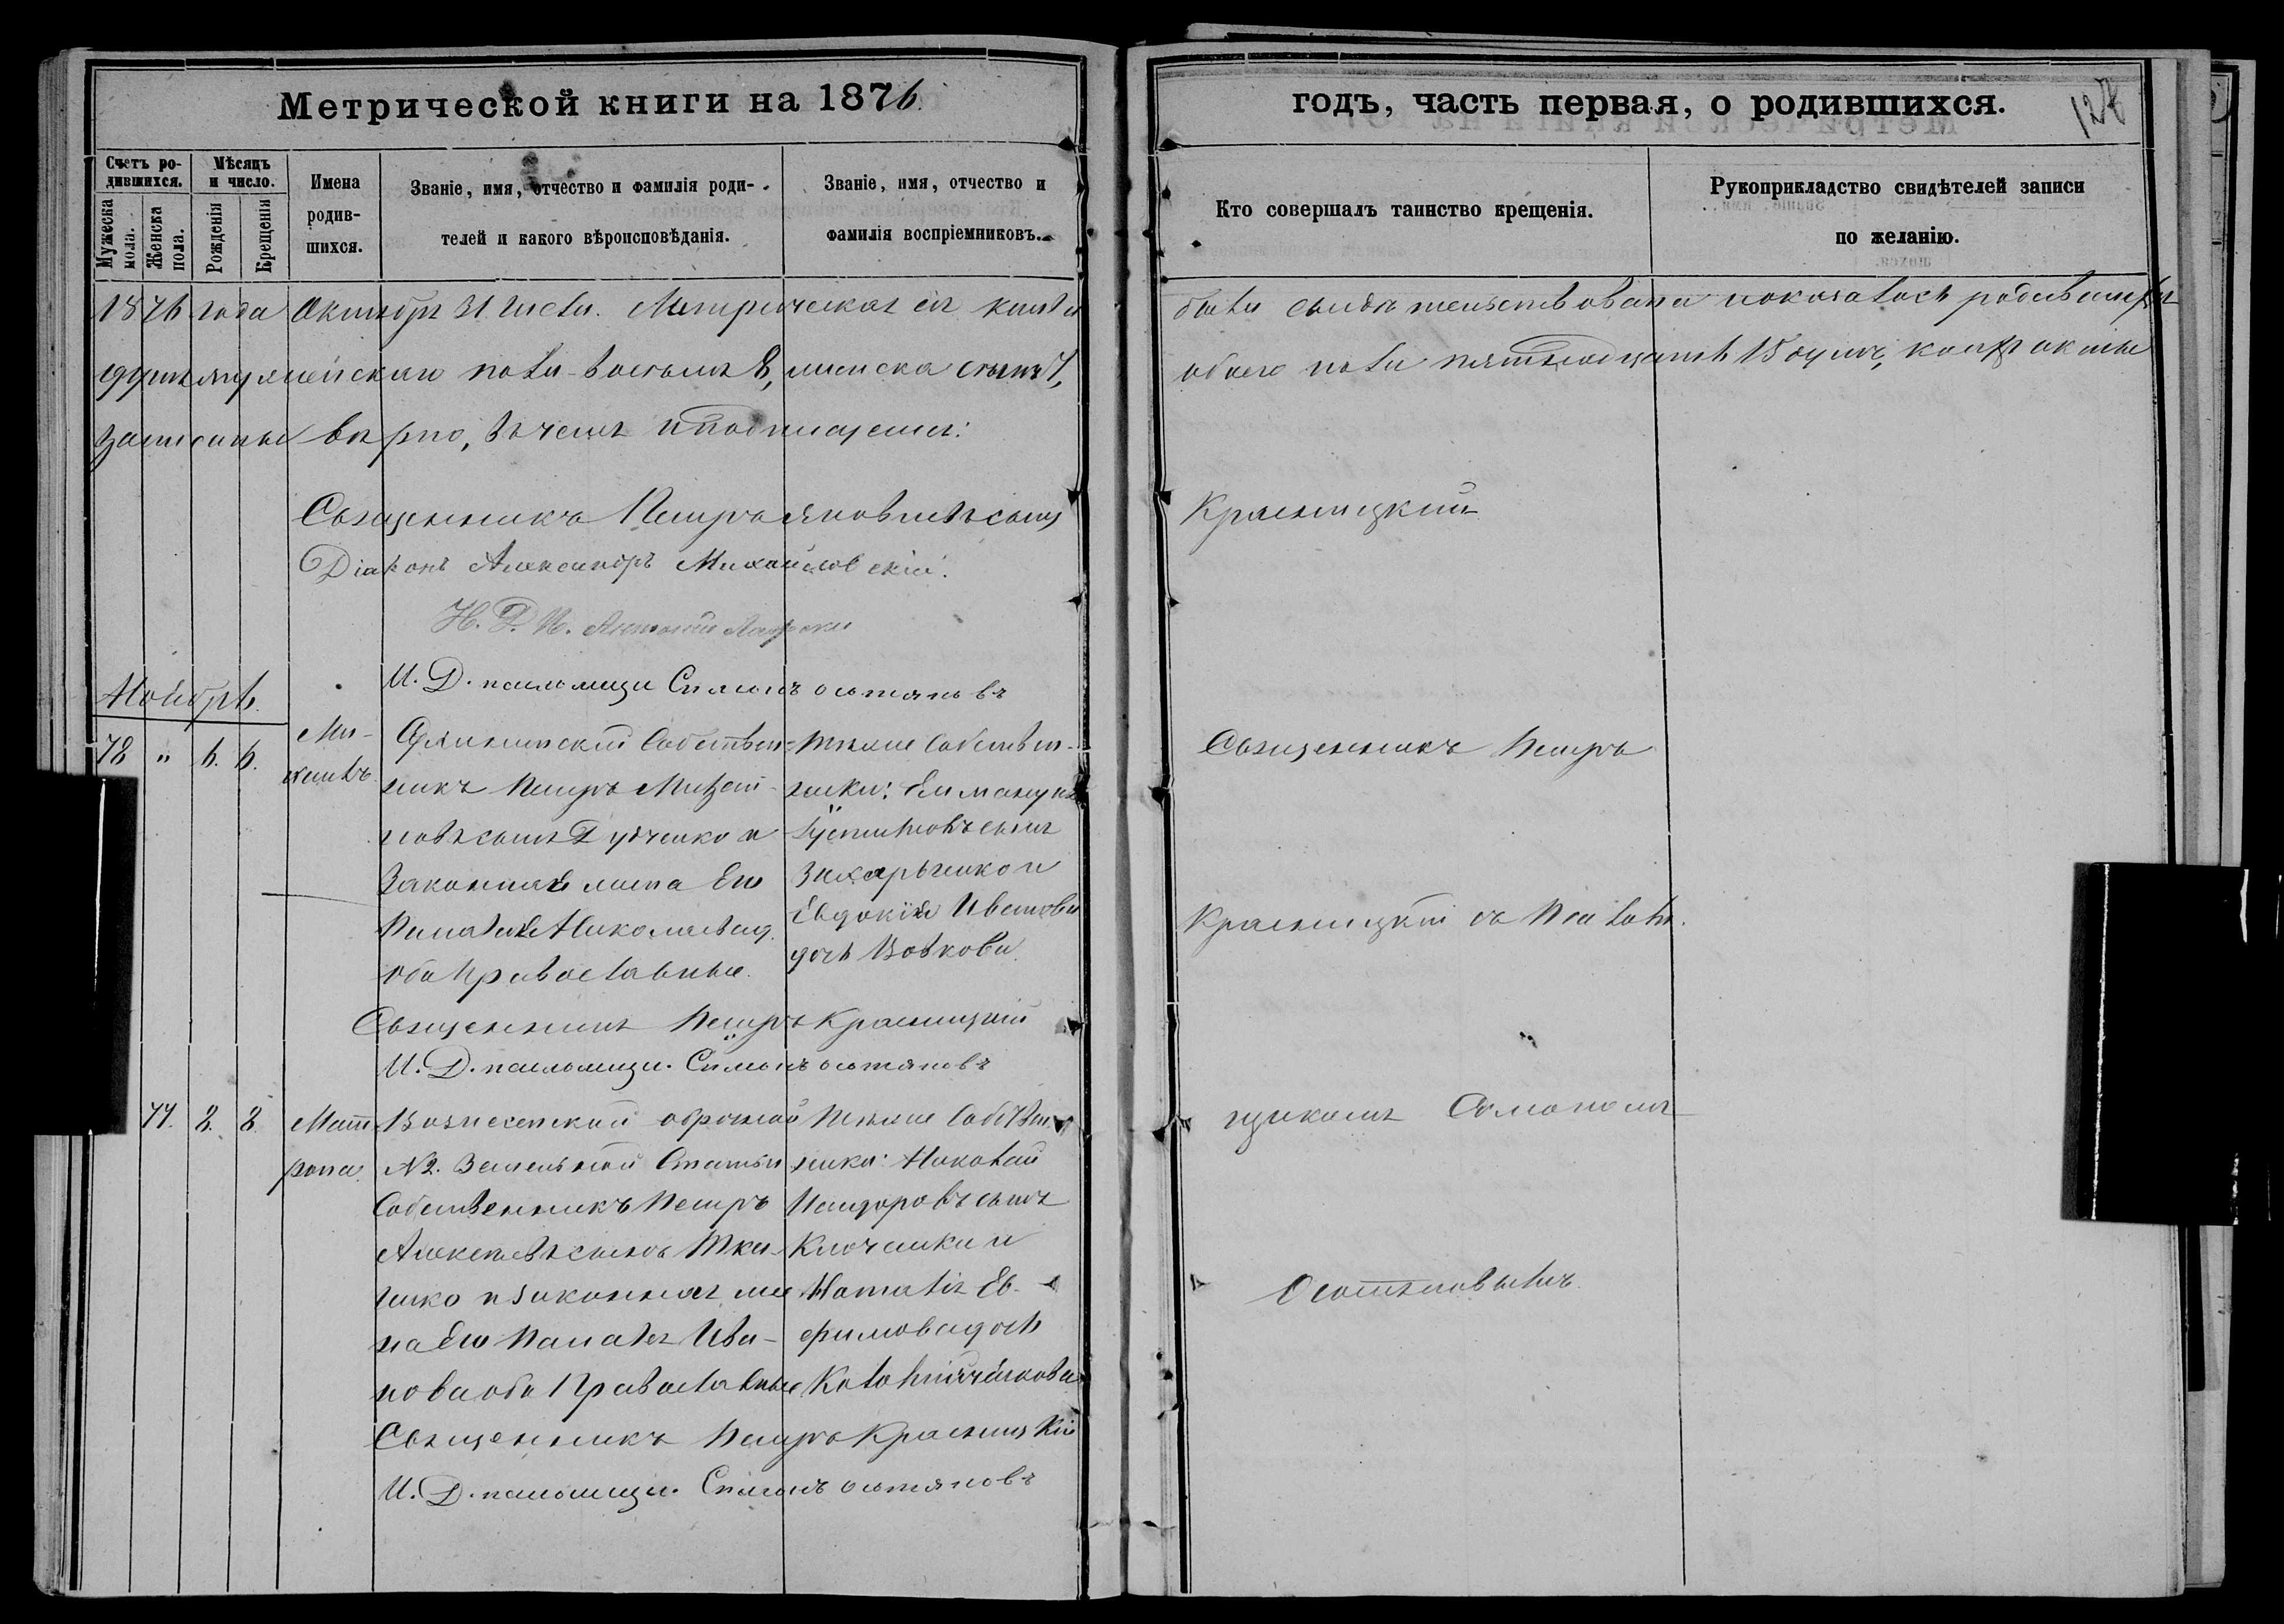 Метрической книги на 1876.
годъ, часть первая, о родившихся.
128
Счетъ ро-
дившихся.
Мужеска
пола.
Женска
пола.
Мѣсяцъ
и число.
Рожденія
Крещенія
Имена
родив-
шихся.
Званіе, имя, отчество и фамилія роди-
телей и какого вѣроисповѣданія.
Званіе, имя, отчество и
фамилія воспріемниковъ.
Кто совершалъ таинство крещенія.
Рукоприкладство свидѣтелей записи
по желанію.
1876 года Октября 31 числа. Метрическая сія книга была свидѣтельствована показалось родившихся
душъ мужеска пола восемь 8, женска семь 7, обоего пола пятнадцать 15 душъ, кои
записаны вѣрно, въ чемъ и подписуемся:
Священникъ Петръ Яковлевъ сынъ Красницкій
Діаконъ Александръ Михайловскій.
И. Д. псаломщи. Симонъ Остяновъ
Ноябрь.
78 " 6. 6.
Ми-
хаилъ.
собствен-
никъ Петръ
новъ сынъ и
Законная жена Его
Пелагія Николаева
оба Православные.
Тѣже собствен-
ники: Еммануилъ
сынъ
Захарченко и
Евдокія Иванова
дочь Волкова.
Священникъ Петръ
Красницкій съ Псалом-
Священникъ Петръ Красницкій
И. Д. псаломщи. Симонъ Остяновъ
77. 8. 8.
Мат-
рона.
Вознесенской оброчной
№2. Земельной Статьи
Собственникъ Петръ
Алексѣевъ сынъ Тка-
ченко и законная же-
на Его Пелагія Ива-
нова оба Православные
Тѣже Собствен-
ники: Николай
Исидоровъ сынъ
Ключенко и
Наталія Ев-
фимова дочь
щикомъ Симономъ
Остяновымъ.
Священникъ Петръ Красницкій
И. Д. псаломщи. Симонъ Остяновъ